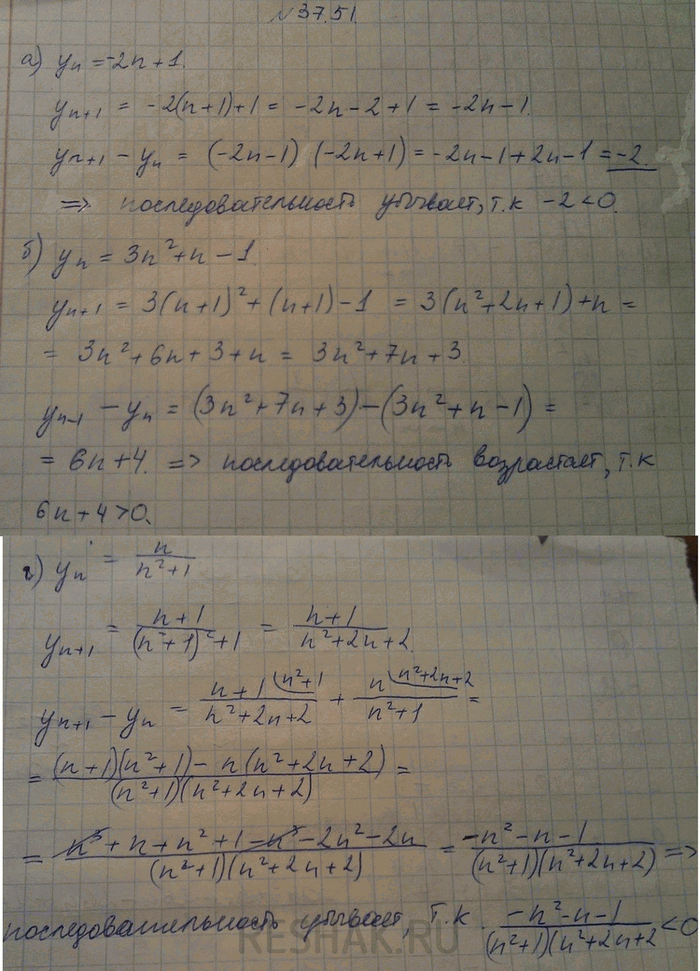 № 37.51.
а) yₙ = -2n + 1.
yₙ₊₁ = -2(n+1)+1 = -2n-2+1 = -2n-1.
yₙ₊₁ - yₙ = (-2n-1) (-2n+1) = -2n-1+2n-1 = -2.
=> последовательность убывает, т.к -2<0.
б) yₙ = 3n²+n-1.
yₙ₊₁ = 3(n+1)²+(n+1)-1 = 3(n²+2n+1)+n =
= 3n²+6n+3+n = 3n²+7n+3.
yₙ₋₁ - yₙ = (3n²+7n+3)-(3n²+n-1) =
= 6n+4. => последовательность возрастает, т.к
6n+4>0.
г) yₙ = n/(n²+1)
yₙ₊₁ = (n+1)/((n²+1)²+1) = (n+1)/(n²+2n+2)
yₙ₊₁ - yₙ = (n+1 (n²+1)/(n²+2n+2) + (n (n²+2n+2)/(n²+1) =
= ((n+1)(n²+1) - n(n²+2n+2))/((n²+1)(n²+2n+2)) =
= (n³+n+n²+1-n³-2n²-2n)/((n²+1)(n²+2n+2)) = (-n²-n-1)/((n²+1)(n²+2n+2)) =>
последовательность убывает, т.к. (-n²-n-1)/((n²+1)(n²+2n+2) <0
RESHAK.RU